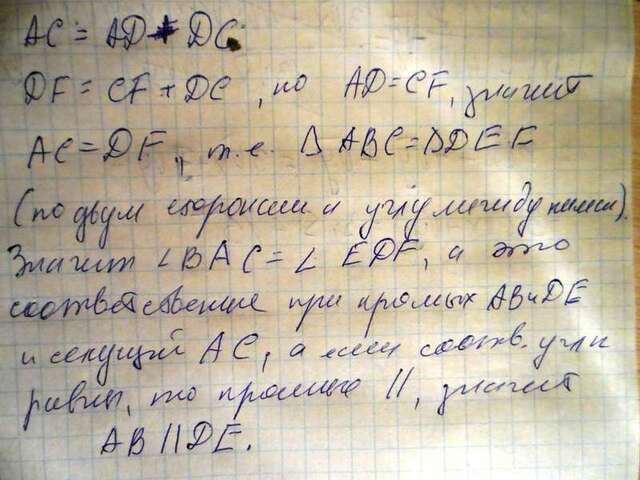 AC = AD + DC
DF = CF + DC, но AD = CF, значит
AC = DF, т.е. Δ ABC = Δ DEF
(по двум сторонам и углу между ними).
Значит ∠BAC = ∠ EDF, а это
соответственные при прямых AB и DE
и секущей AC, а если соотв. углы
равны, то прямые ||, значит
AB || DE.